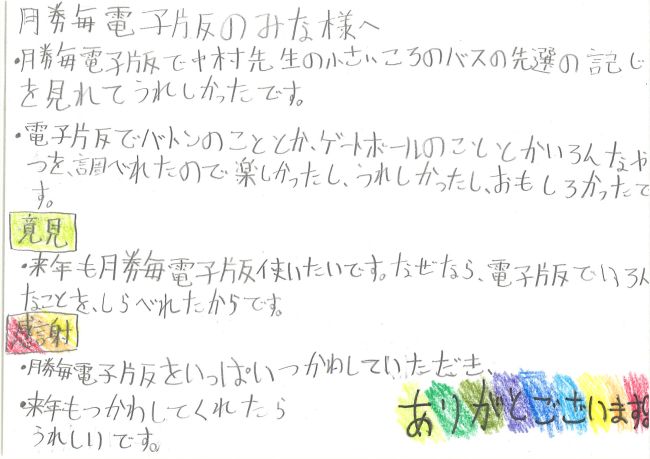 月券毎電子片反のみな様へ
・月券毎電子片反で中村先生の小さいころのバスの先選の記じ
を見れてうれしかったです。
・電子片反でバトンのこととか、ゲートボールのこととかいろんなや
つを、調べれたので楽しかったし、うれしかったし、おもしろかったで
す。
意見
・来年も月券毎電子片版使いたいです。なぜなら、電子片反でいろん
なことを、しらべれたからです。
感謝
・月券毎電子片反をいっぱいつかわしていただき、
・来年もつかわしてくれたら
うれしいです。
ありがとございます。